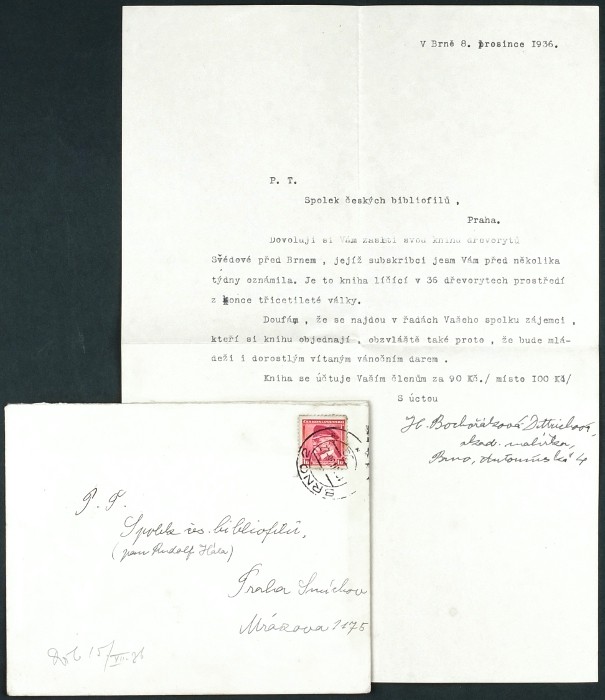 V Brně 8. prosince 1936.
P. T.
Spolek českých bibliofilů ,
Praha.
Dovoluji si Vám zaslati svou knihu dřevorytů
Švédové před Brnem , jejíž subskribci jsem Vám před několika
týdny oznámila. Je to kniha líčící v 35 dřevorytech prostředí
z konce třicetileté války.
Doufám, že se najdou v řadách Vašeho spolku zájemci ,
kteří si knihu objednají , obzvláště také proto , že bude mlá-
deži i dorostlým vítaným vánočním darem .
Kniha se účtuje Vaším členům za 90 Kč./ místo 100 Kč/
S úctou
H. Bochořáková Dittrichová,
akad. malířka,
Brno, Antonínská 4
BRNO 2
P. T.
Spolek čes. bibliofilů,
(pan Rudolf Hála)
Praha Smíchov
Mrázova 1175